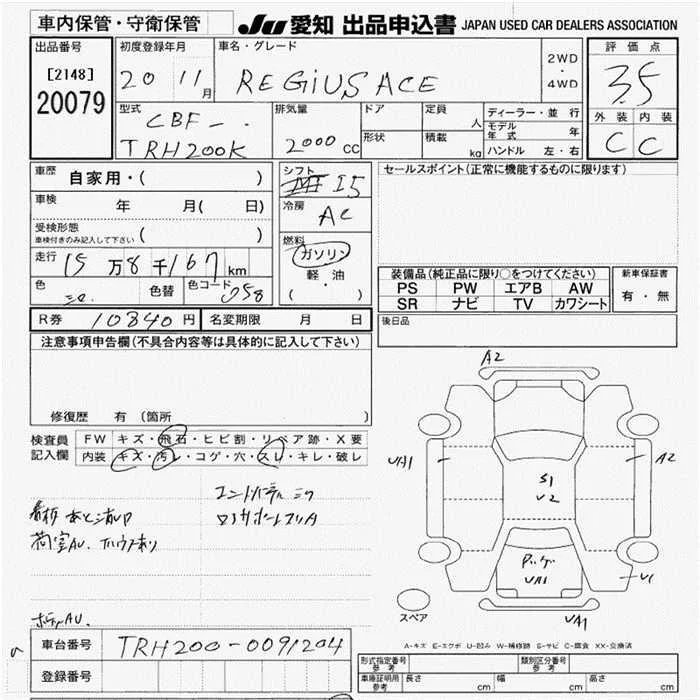 車内保管・守衛保管
JU 愛知 出品申込書 JAPAN USED CAR DEALERS ASSOCIATION
出品番号
[2148]
20079
初度登録年月
20 11月
車名・グレード
REGiUS ACE
2WD
・
4WD
評価点
3.5
外装 内装
C C
型式
CBF-
TRH200K
排気量
2000 cc
ドア
形状
定員
人
積載
kg
ディーラー・並行
モデル年式
年
ハンドル 左・右
車歴
自家用・( )
車検
年 月( 日)
受検形態
車検付きのみ記入して下さい
( )
走行
15万8千167km
色
色替
色コード
058
シフト
I5
冷房
AC
燃料
ガソリン
軽・油
( ・ )
セールスポイント(正常に機能するものに限ります)
装備品(純正品に限り○をつけてください)
PS PW エアB AW
SR ナビ TV カワシート
新車保証書
有・無
R券 10840円
名変期限 月 日
後日品
注意事項申告欄(不具合内容等は具体的に記入して下さい)
修復歴 有(箇所 )
検査員
記入欄
FW キズ・飛石・ヒビ割・リペア跡・X要
内装 キズ・汚レ・コゲ・穴・スレ・キレ・破レ
A2
UA1
A2
S1
U2
UA1
U1
UA1
スペア
A-キズ E-エクボ U-凹み W-補修跡 S-サビ C-腐食 XX-交換済
車台番号
TRH200-0091204
登録番号
形式指定番号
参考
類別区分番号
参考
車庫証明用
参考
長さ cm
幅 cm
高さ cm